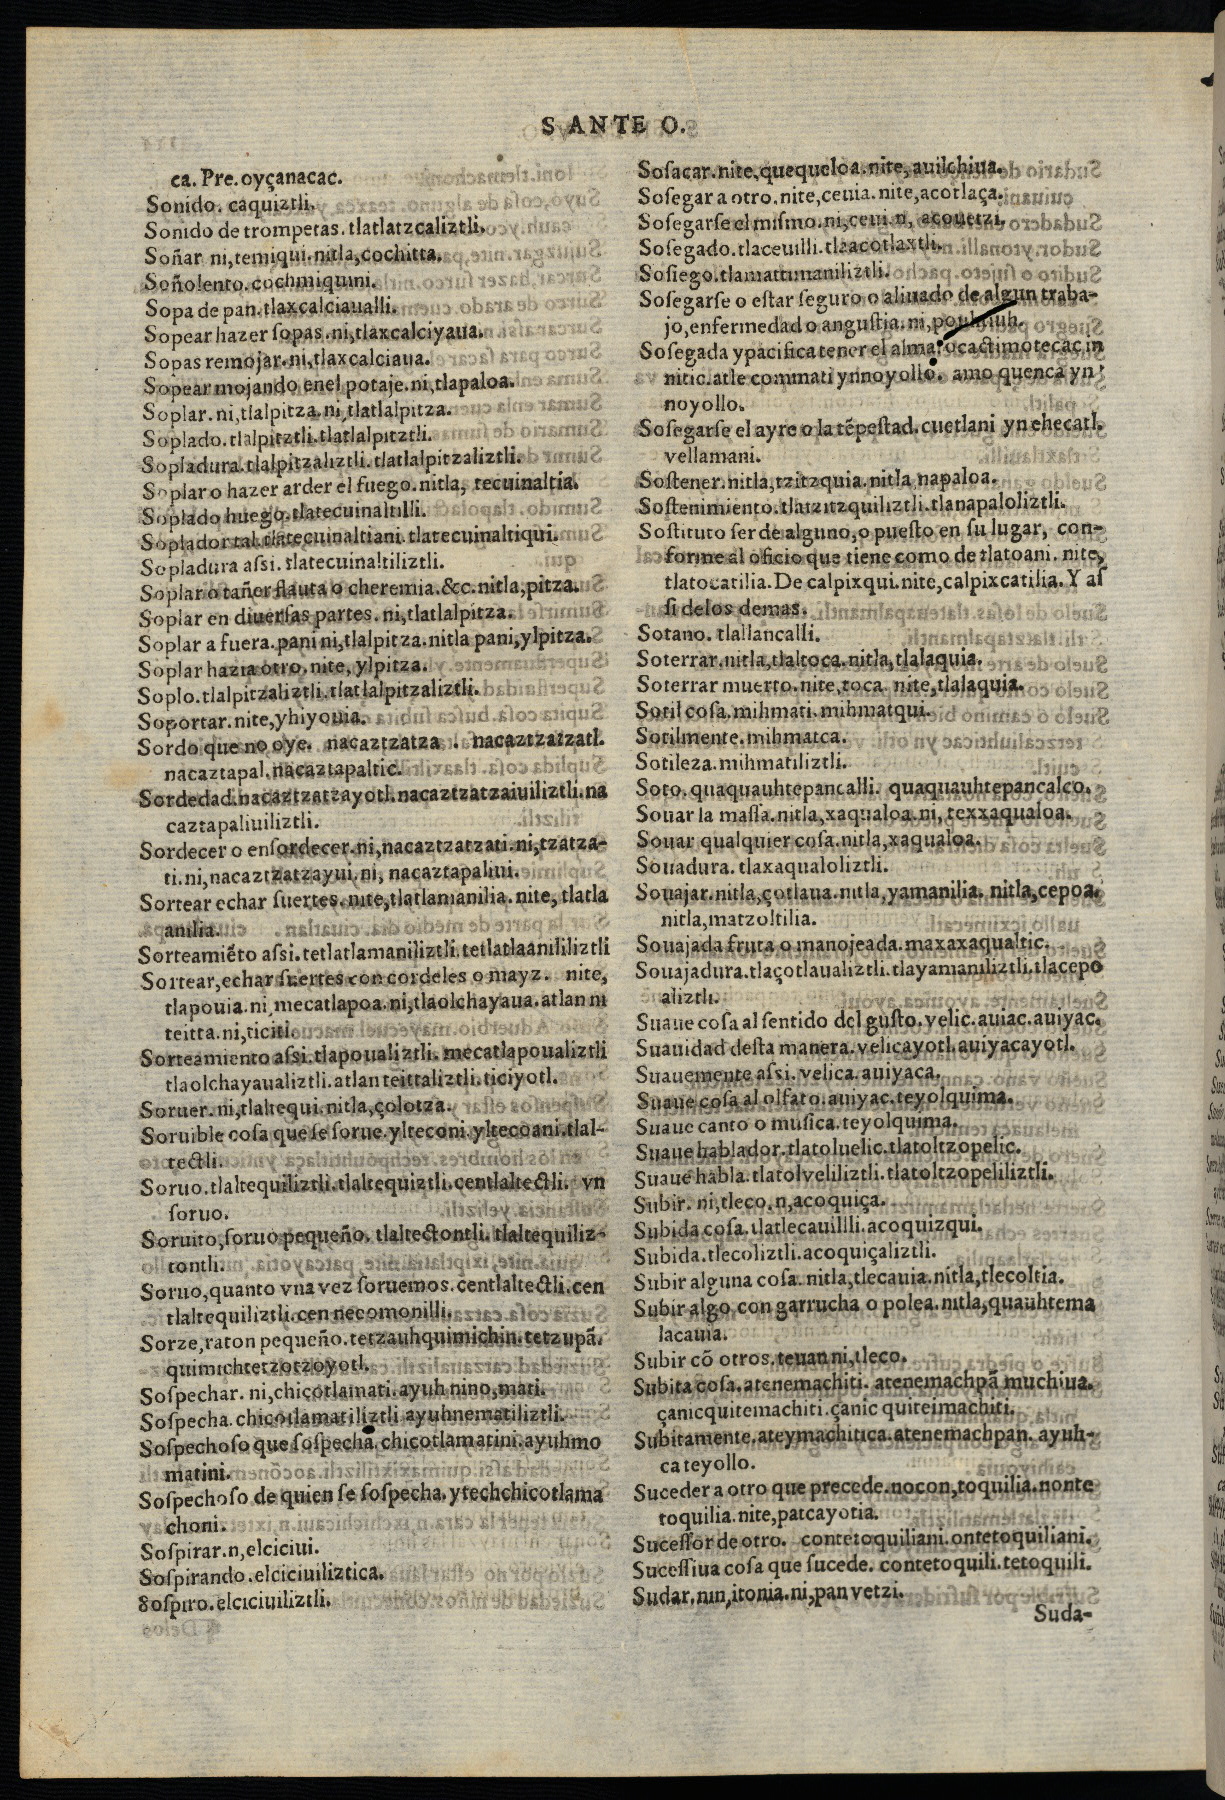 S ANTE O.
ca. Pre. oyçanacac.
Sonido. caquiztli.
Sonido de trompetas. tlatlatzcaliztli.
Soñar ni,temiqui.nitla,cochitta.
Soñolento.cochmiquini.
Sopa de pan.tlaxcalciaualli.
Sopear hazer ſopas.ni,tlaxcalciyaua.
Sopas remojar.ni,tlaxcalciaua.
Sopear mojando enel potaje.ni,tlapaloa.
Soplar.ni,tlalpitza.ni,tlatlalpitza.
Soplado.tlalpitztli.tlatlalpitztli.
Sopladura.tlalpitzaliztli.tlatlalpitzaliztli.
Soplar o hazer arder el fuego.nitla, tecuinaltia.
Soplado huego.tlatecuinaltilli.
Soplador tal.tlatecuinaltiani.tlatecuinaltiqui.
Sopladura aſsi.tlatecuinaltiliztli.
Soplar o tañer flauta o cheremia.&c.nitla,pitza.
Soplar en diuerſas partes.ni,tlatlalpitza.
Soplar a fuera.pani ni,tlalpitza.nitla pani,ylpitza.
Soplar hazia otro.nite, ylpitza.
Soplo.tlalpitzaliztli.tlatlalpitzaliztli.
Soportar.nite,yhiyouia.
Sordo que no oye. nacaztzatza . nacaztzatzatl.
nacaztapal.nacaztapaltic.
Sordedad.nacaztzatzayotl.nacaztzatzaiuiliztli.na
caztapaliuiliztli.
Sordecer o enſordecer.ni,nacaztzatzati.ni,tzatza-
ti.ni,nacaztzatzayui.ni, nacaztapaliui.
Sortear echar ſuertes.nite,tlatlamanilia.nite, tlatla
anilia.
Sorteamiẽto aſsi.tetlatlamaniliztli.tetlatlaanililiztli
Sortear,echar ſuertes con cordeles o mayz. nite,
tlapouia.ni,mecatlapoa.ni,tlaolchayaua.atlan ni
teitta.ni,ticiti.
Sorteamiento aſsi.tlapoualiztli.mecatlapoualiztli
tlaolchayaualiztli.atlan teittaliztli.ticiyotl.
Soruer.ni,tlaltequi.nitla,çolotza.
Soruible coſa que ſe ſorue.ylteconi.yltecoani.tlal-
tectli.
Soruo.tlaltequiliztli.tlaltequiztli.centlaltectli. vn
ſoruo.
Soruito,ſoruo pequeño. tlaltectontli.tlaltequiliz-
tontli.
Soruo,quanto vna vez ſoruemos.centlaltectli.cen
tlaltequiliztli.cen necomonilli.
Sorze,raton pequeño.tetzauhquimichin.tetzupã.
quimichtetzotzoyotl.
Soſpechar. ni,chicotlamati.ayuh nino,mati.
Soſpecha.chicotlamatiliztli ayuhnematiliztli.
Soſpechoſo que ſoſpecha.chicotlamatini.ayuhmo
matini.
Soſpechoſo de quien ſe ſoſpecha.ytechchicotlama
choni.
Soſpirar.n,elciciui.
Soſpirando.elciciuiliztica.
Soſpiro.elciciuiliztli.
Soſacar.nite,quequeloa.nite,auilchiua.
Soſegar a otro.nite,ceuia.nite,acotlaça.
Soſegarſe el miſmo.ni,ceui.n, acouetzi.
Soſegado.tlaceuilli.tlaacotlaxtli.
Soſiego.tlamattimaniliztli.
Soſegarſe o eſtar ſeguro o aliuado de algun traba-
jo,enfermedad o anguſtia.ni,pouhtiuh.
Soſegada y pacifica tener el alma. ocactimotecac in
nitic.atle commati ynnoyollo. amo quenca yn
noyollo.
Soſegarſe el ayre o la tẽpeſtad.cuetlani yn ehecatl.
vellamani.
Soſtener.nitla,tzitzquia.nitla,napaloa.
Soſtenimiento.tlatzitzquiliztli.tlanapaloliztli.
Soſtituto ſer de alguno,o pueſto en ſu lugar, con-
forme al oficio que tiene como de tlatoani. nite,
tlatocatilia.De calpixqui.nite,calpixcatilia.Y aſ
ſi delos demas.
Sotano. tlallancalli.
Soterrar.nitla,tlaltoca.nitla,tlalaquia.
Soterrar muerto.nite,toca nite,tlalaquia.
Sotil coſa.mihmati.mihmatqui.
Sotilmente.mihmatca.
Sotileza.mihmatiliztli.
Soto.quaquauhtepancalli. quaquauhtepancalco.
Souar la maſſa.nitla,xaqualoa.ni, texxaqualoa.
Souar qualquier coſa.nitla,xaqualoa.
Souadura.tlaxaqualoliztli.
Souajar.nitla,çotlaua.nitla,yamanilia. nitla,cepoa.
nitla,matzoltilia.
Souajada fruta o manojeada.maxaxaqualtic.
Souajadura.tlaçotlaualiztli.tlayamaniliztli.tlacepo
aliztli.
Suaue coſa al ſentido del guſto.velic.auiac.auiyac.
Suauidad deſta manera.velicayotl.auiyacayotl.
Suauemente aſsi.velica.auiyaca.
Suaue coſa al olfato.auiyac.teyolquima.
Suaue canto o muſica.teyolquima.
Suaue hablador.tlatoluelic.tlatoltzopelic.
Suaue habla.tlatolveliliztli.tlatoltzopeliliztli.
Subir. ni,tleco.n,acoquiça.
Subida coſa.tlatlecauililli.acoquizqui.
Subida.tlecoliztli.acoquiçaliztli.
Subir alguna coſa. nitla,tlecauia.nitla,tlecoltia.
Subir algo con garrucha o polea.nitla,quauhtema
lacauia.
Subir cõ otros.teuan ni,tleco.
Subita coſa.atenemachiti. atenemachpã muchiua.
çanicquitemachiti.çanic quiteimachiti.
Subitamente.ateymachitica.atenemachpan. ayuh-
ca teyollo.
Suceder a otro que precede.nocon,toquilia.nonte
toquilia.nite,patcayotia.
Suceſſor de otro. contetoquiliani.ontetoquiliani.
Suceſſiua coſa que ſucede. contetoquili.tetoquili.
Sudar.nin,itonia.ni,pan vetzi.
Suda-